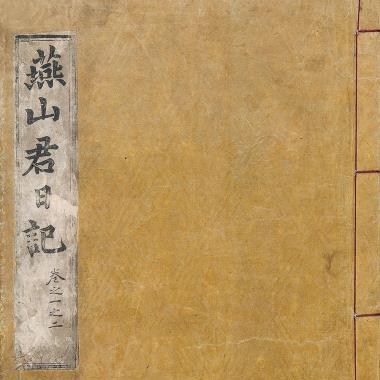 燕山君日記
卷之一之二